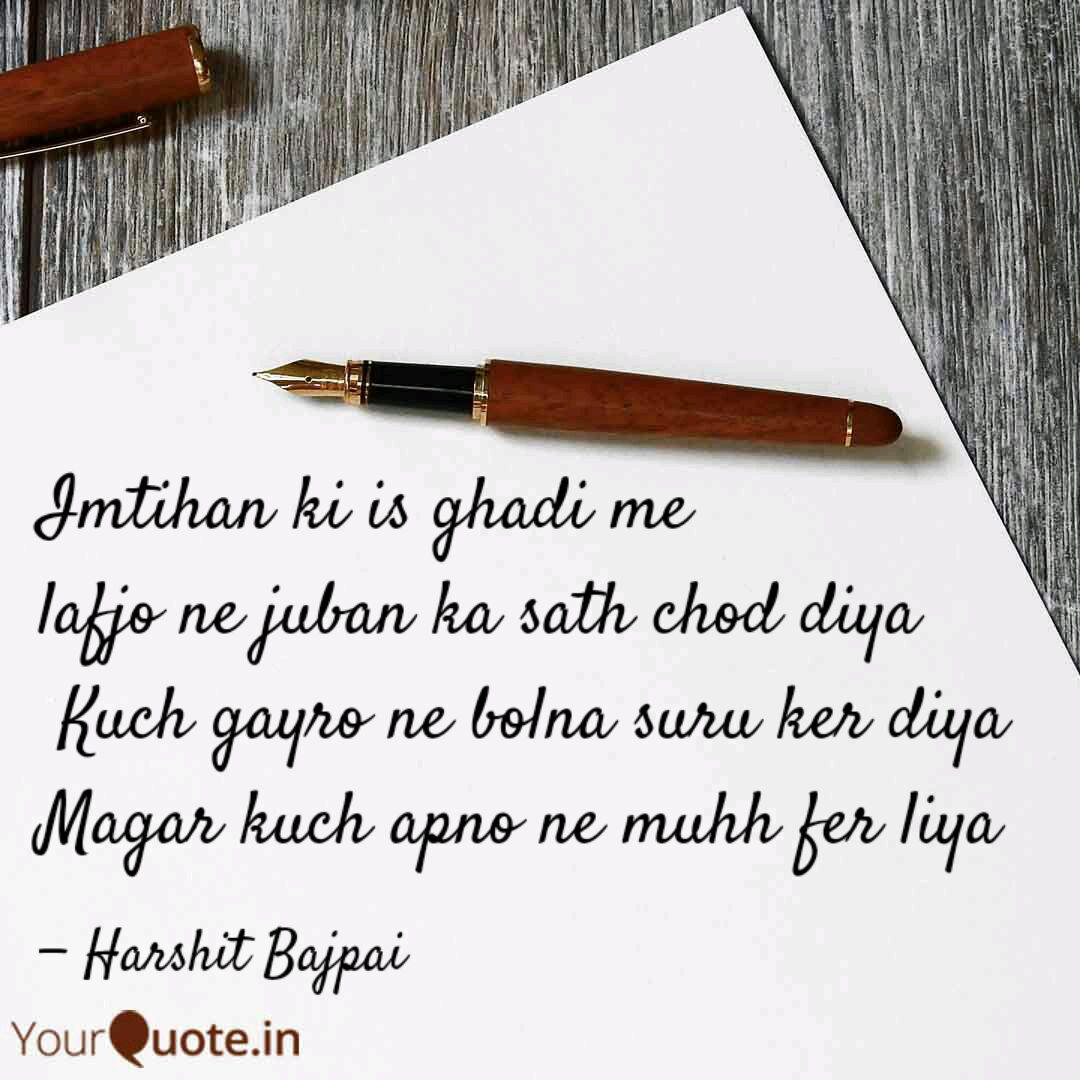 Imtihan ki is ghadi me
lafjo ne juban ka sath chod diya
Kuch gayro ne bolna suru ker diya
Magar kuch apno ne muhh fer liya
- Harshit Bajpai
YourQuote.in